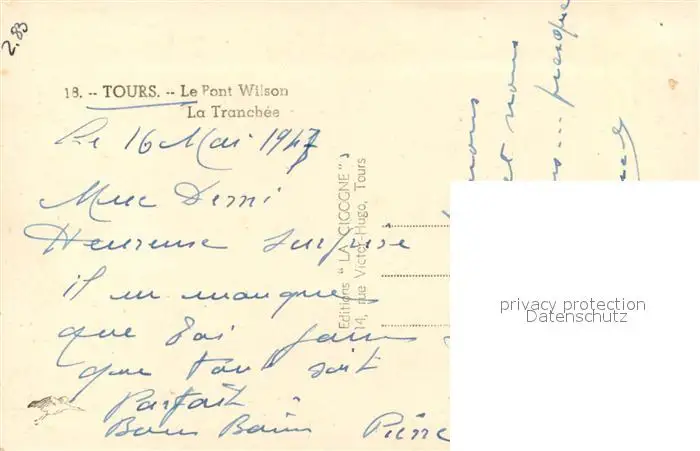 2.83
18. -- TOURS. -- Le Pont Wilson
La Tranchée
Le 16 Mai 1947
Heureuse surprise
il ne manque
que toi pour
que tout soit
Parfait
Bons Baisers Pierre
Editions "LA CIGOGNE"
14, rue Victor-Hugo, Tours
nous
et nous
... presque
privacy protection
Datenschutz